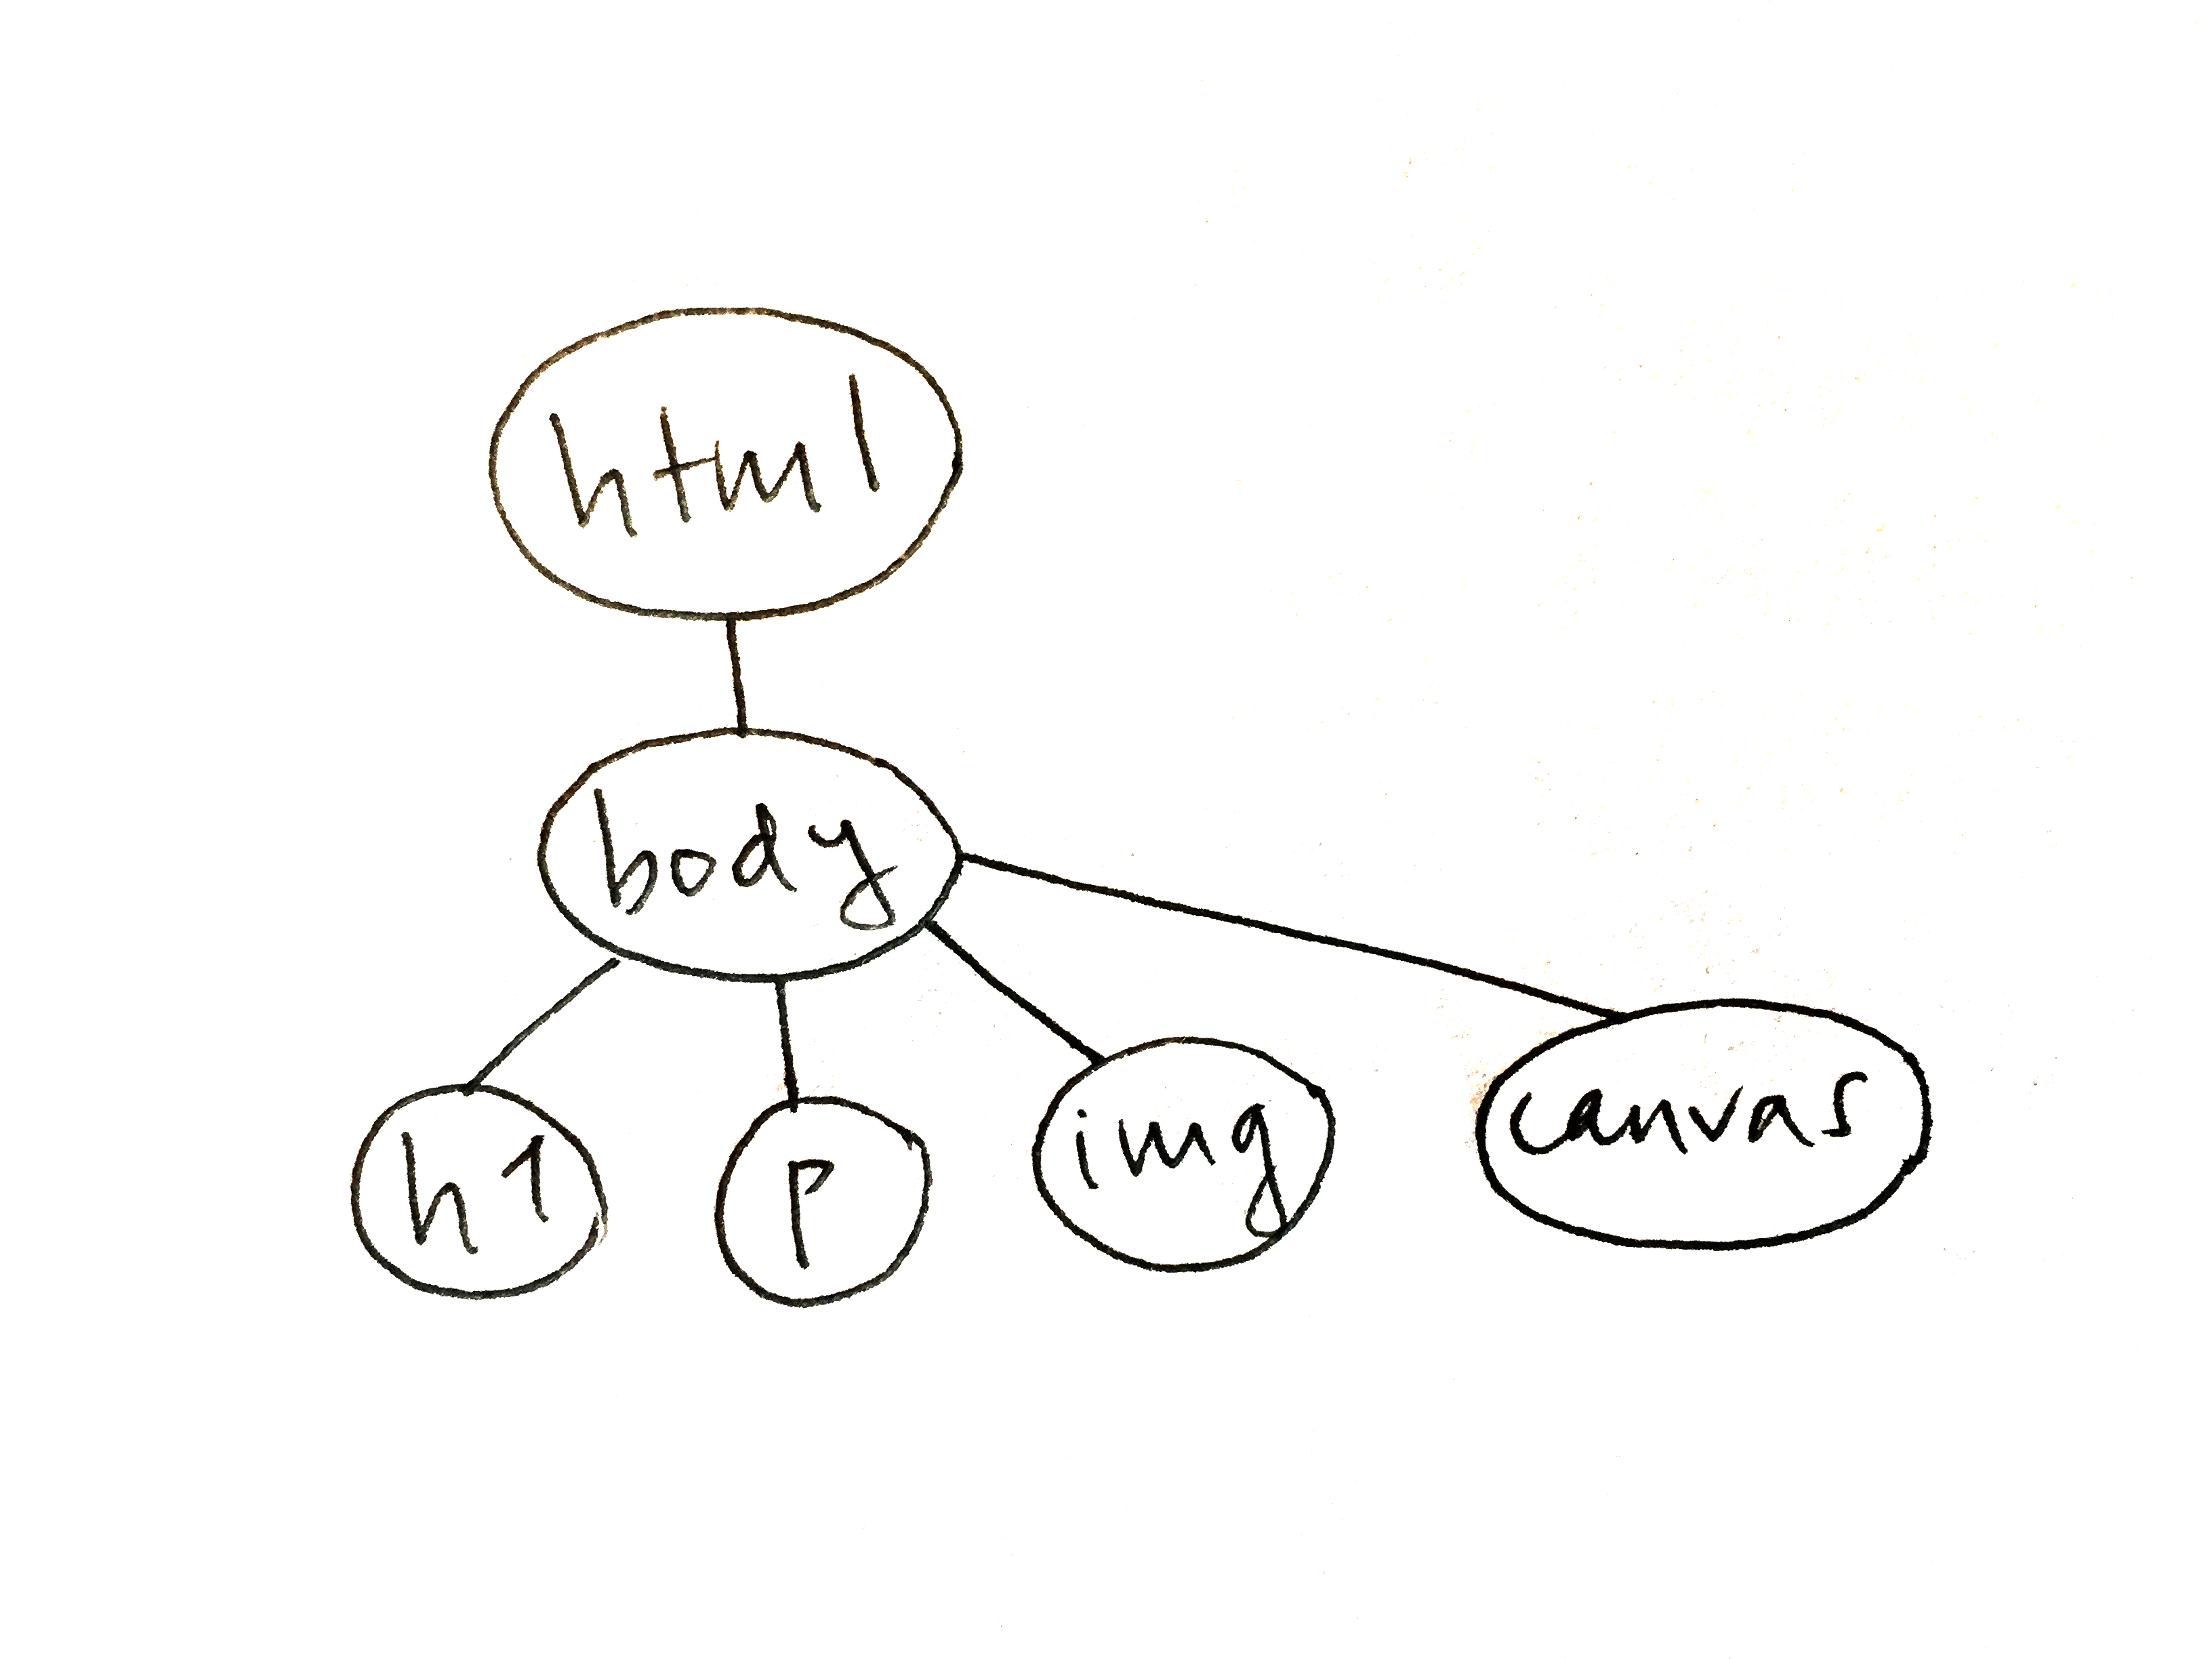 html
body
h1
p
img
canvas